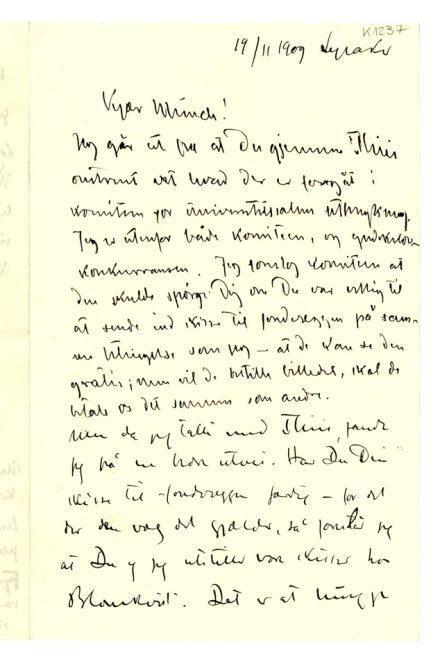 K1237
19/11 1909 Lysaker
Kjær Munch!
Jeg går ut fra at Du gjennem Thiis
omtrent vet hvad der er foregåt i
komiteen for Universitetssalens utsmykning.
Jeg er utenfor både komiteen, og
konkurransen. Jeg foreslog komiteen at
den skulde spørge Dig om Du var villig til
åt sende ind skisse til fondvæggen på sam-
me betingelse som jeg – åt de kan se den
gratis; men vil de bestille billedet, skal de
betale os det samme som andre.
Men da jeg talte med Thiis, fandt
jeg på en bedre utvei. Har Du Din
skisse til fondvæggen færdig – for det
er den væg det gjælder, så foreslår jeg
åt Du og jeg utstiller vore skisser hos
Blomkvist. Det er åt